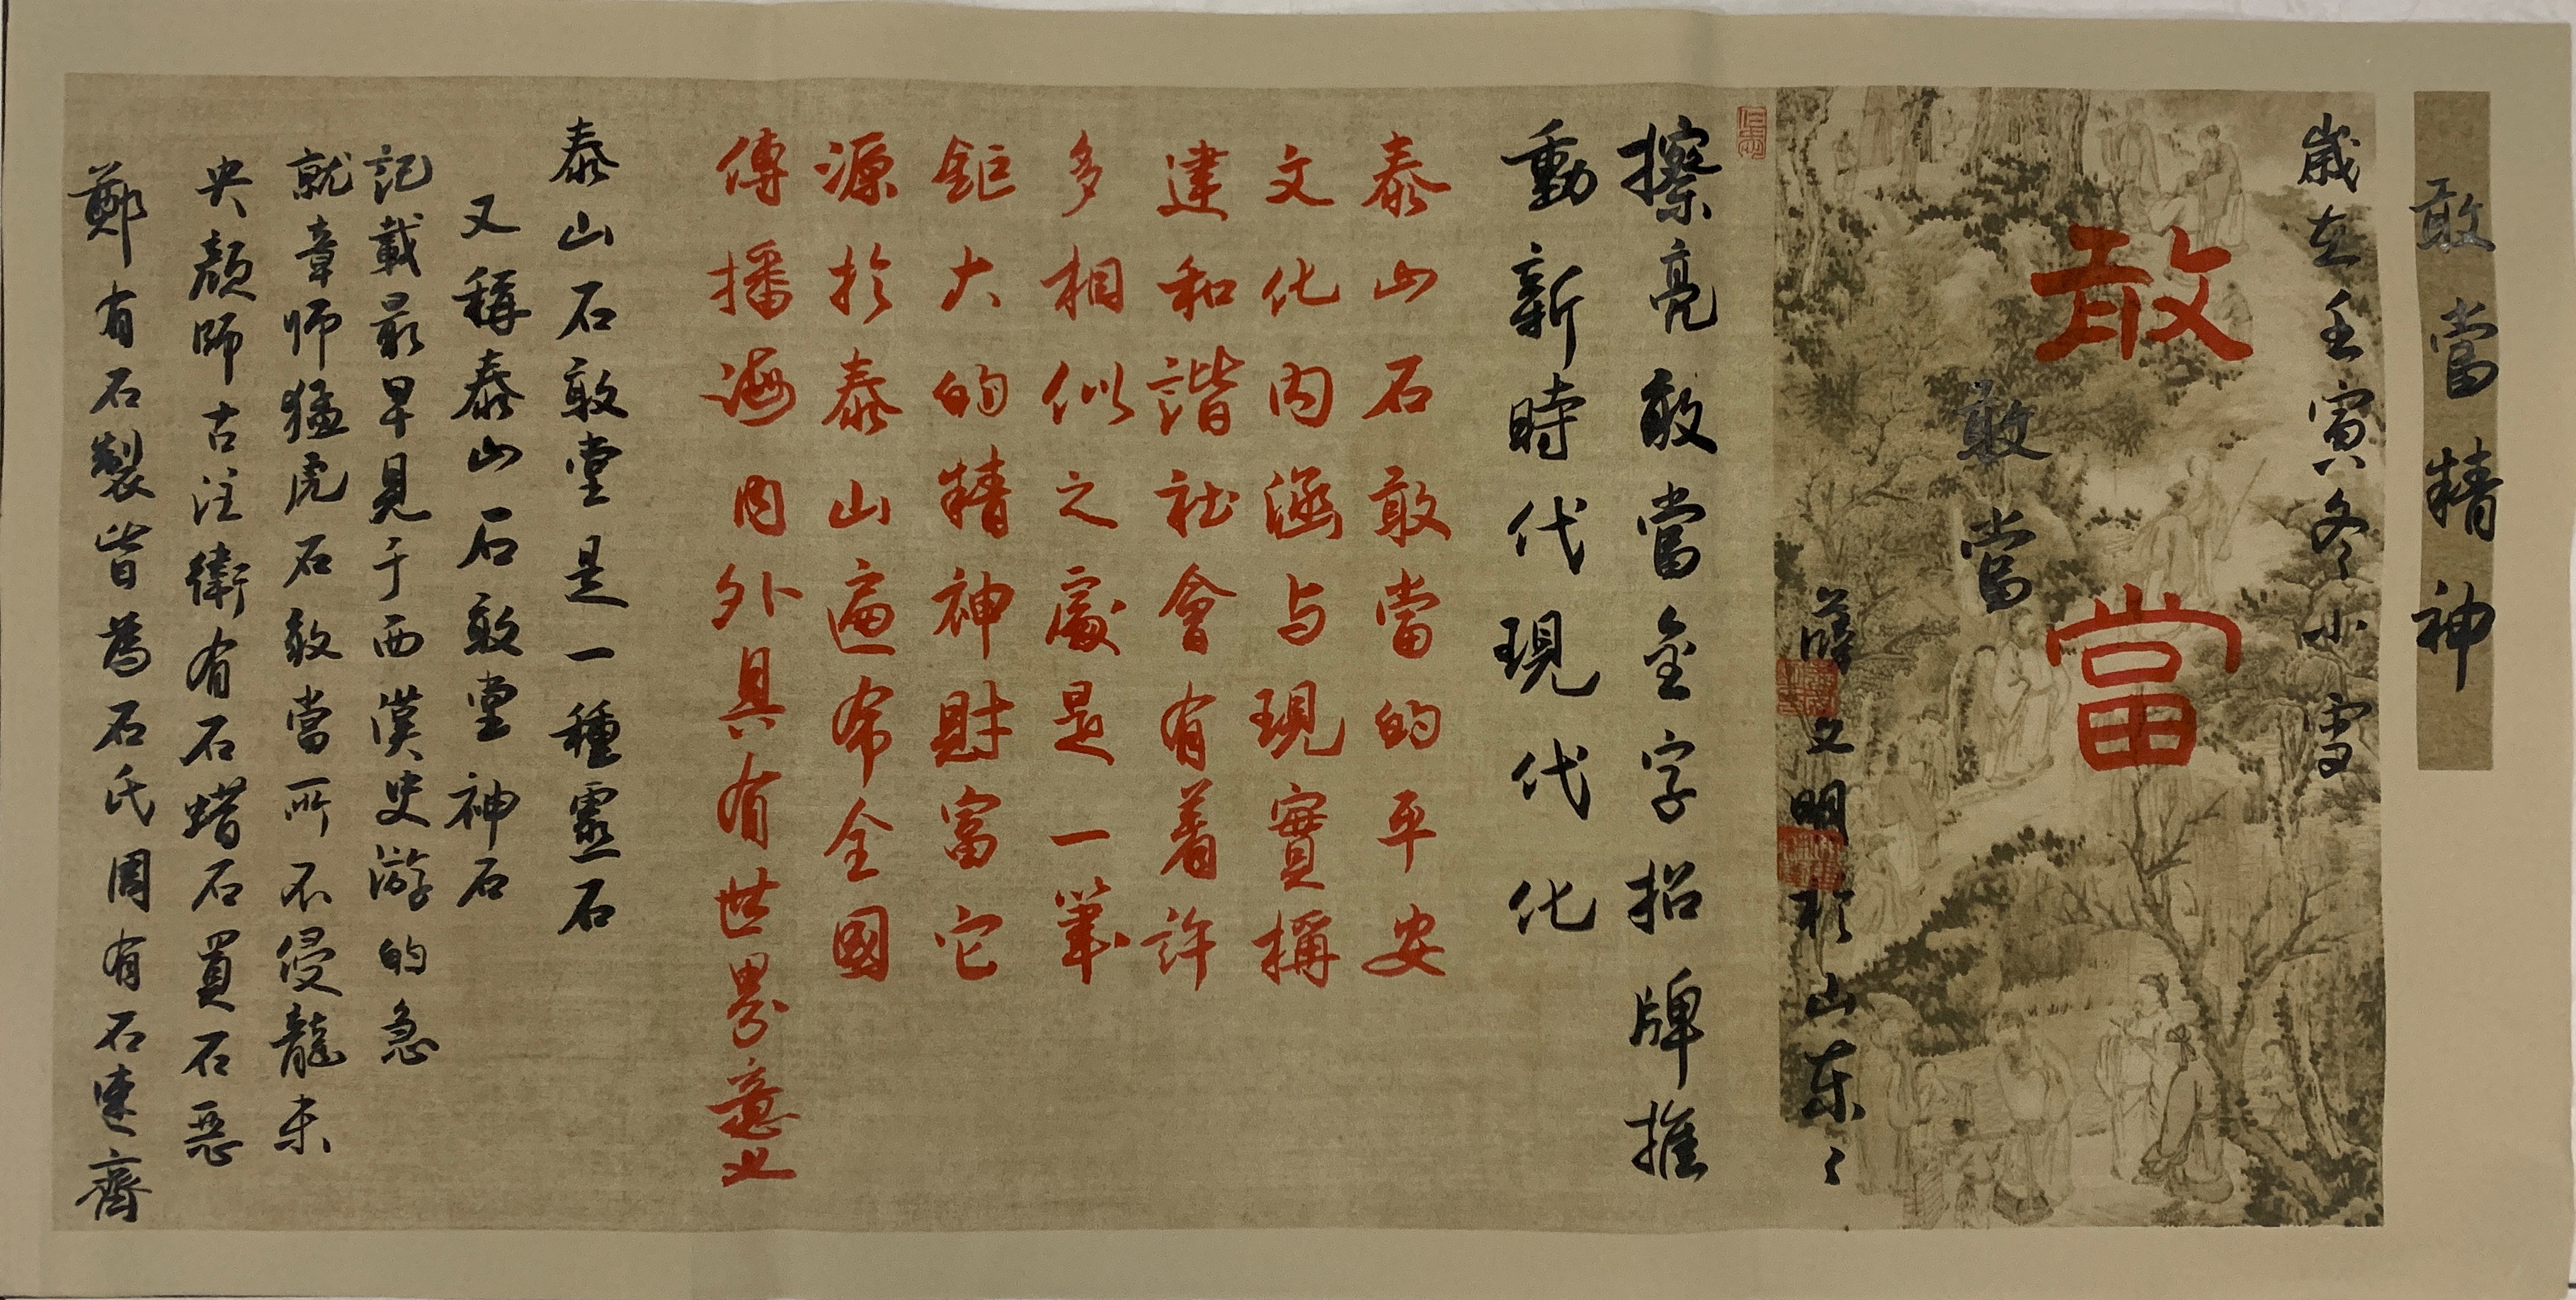 敢當精神
歲在壬寅冬小雪
敢當
敢當
薛文明於山東
擦亮敢當金字招牌推
動新時代現代化
泰山石敢當的平安
文化内涵与現實構
建和諧社會有着許
多相似之處是一筆
鉅大的精神財富它
源於泰山遍布全國
傳播海内外具有世界意义
泰山石敢堂是一種靈石
又稱泰山石敢堂神石
記載最早見于西漢史游的急
就章师猛虎石敢當所不侵龍未
央顏師古注衛有石蜡石買石惡
鄭有石製皆為石氏周有石速齊